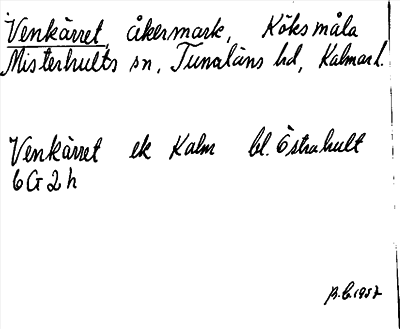 Venkärret, åkermark, Köksmåla
Misterhults sn, Tunaläns hd, Kalmar l.
Venkärret ek Kalm bl. Östrahult
6G2h
B.G. 1957